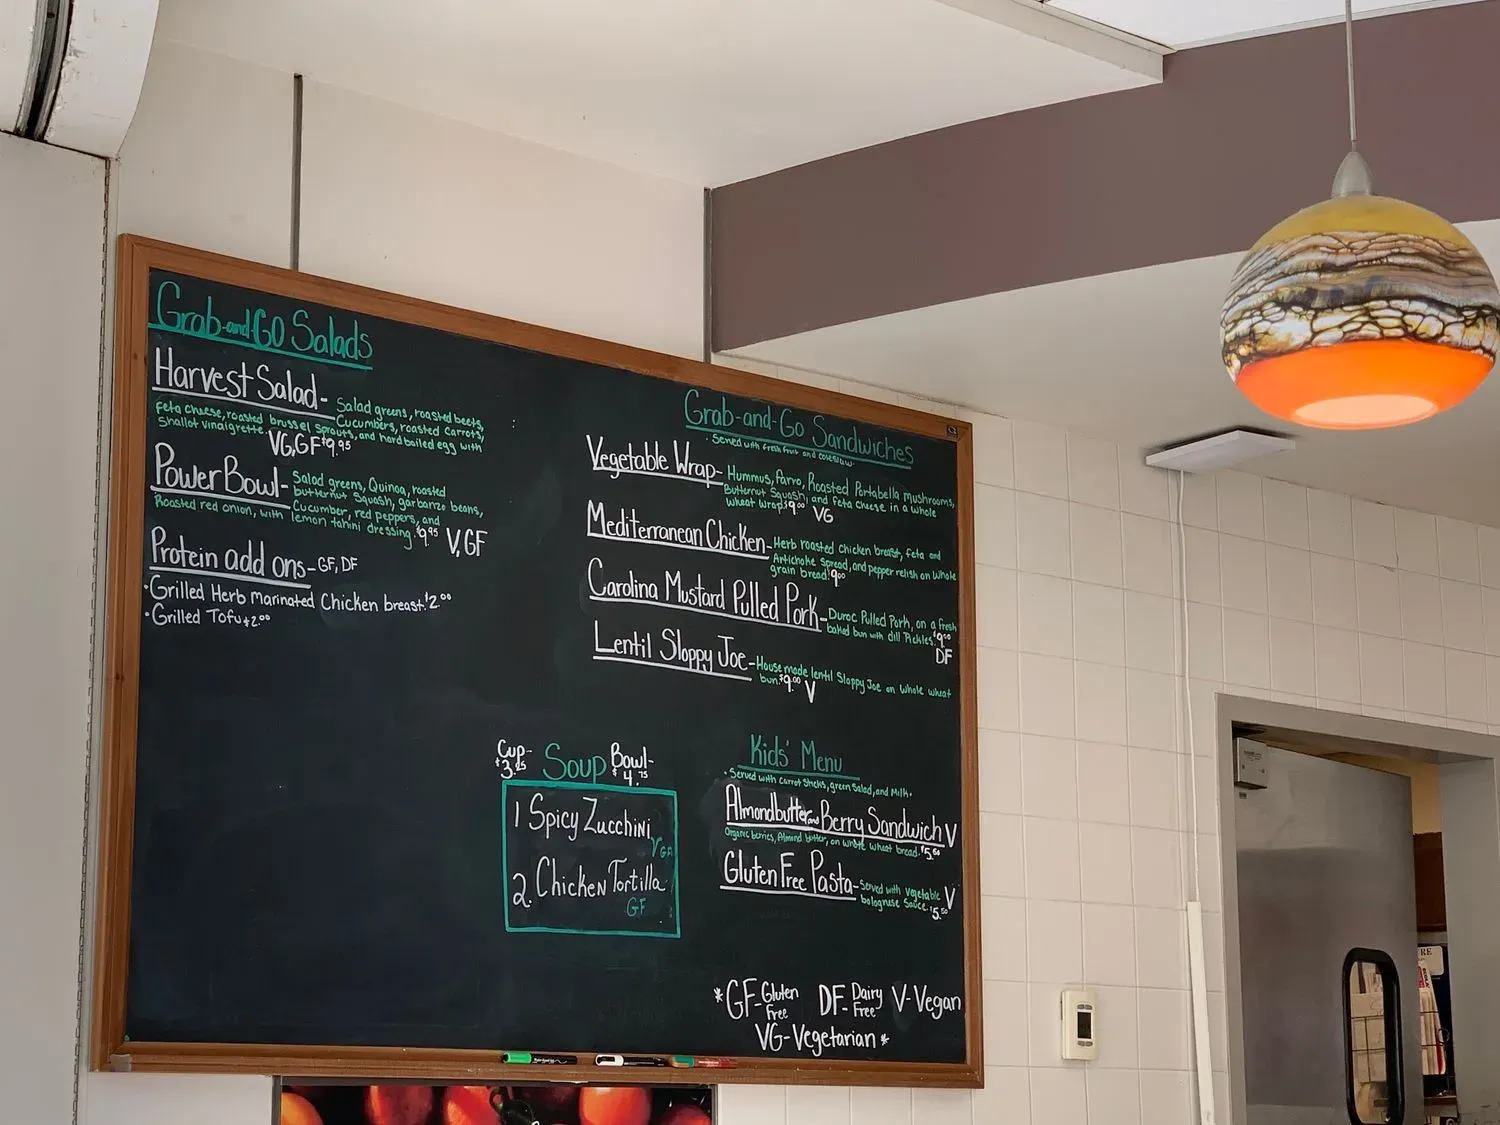 Grab-and-GO Salads
Harvest Salad- Salad greens, roasted beets,
Cucumbers, roasted Carrots,
feta cheese, roasted brussel sprouts, and hard boiled egg with
Shallot vinaigrette. VG, GF $9.95
Power Bowl- Salad greens, Quinoa, roasted
butternut Squash, garbanzo beans,
Cucumber, red peppers, and
Roasted red onion, with lemon tahini dressing. $9.95 V, GF
Protein add ons- GF, DF
•Grilled Herb marinated Chicken breast. $2.00
•Grilled Tofu $2.00
Grab-and-Go Sandwiches
•Served with fresh fruit and coleslaw.
Vegetable Wrap- Hummus, Farro, Roasted Portabella mushrooms,
Butternut Squash, and feta Cheese in a whole
wheat wrap. $9.00 VG
Mediterranean Chicken- Herb roasted chicken breast, feta and
Artichoke Spread, and pepper relish on whole
grain bread. $9.00
Carolina Mustard Pulled Pork- Duroc Pulled Pork, on a fresh
baked bun with dill Pickles. $9.00
DF
Lentil Sloppy Joe- House made lentil Sloppy Joe on whole wheat
bun. $9.00 V
Cup- $3.25 Soup Bowl- $4.75
1 Spicy Zucchini
V GF
2. Chicken Tortilla
GF
Kids' Menu
•Served with Carrot Sticks, green Salad, and Milk.
Almondbutter and Berry Sandwich V
Organic berries, Almond butter, on whole wheat bread. $5.50
Gluten Free Pasta- Served with vegetable V
bolognese Sauce. $5.50
*GF-Gluten Free DF-Dairy Free V-Vegan
VG-Vegetarian*